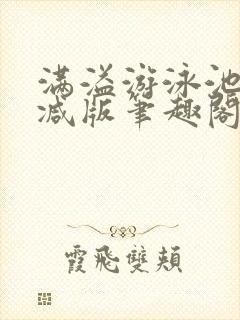 满溢游泳池
减版笔趣阁
霞飛雙頰